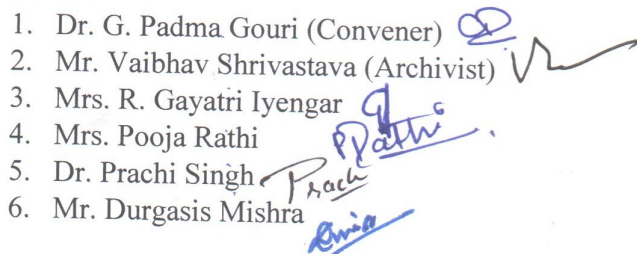 1. Dr. G. Padma Gouri (Convener)
2. Mr. Vaibhav Shrivastava (Archivist)
3. Mrs. R. Gayatri Iyengar
4. Mrs. Pooja Rathi PRathi
5. Dr. Prachi Singh Prachi
6. Mr. Durgasis Mishra